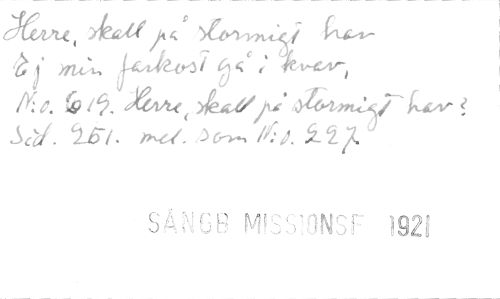 Herre, skall på stormigt hav
Ej min farkost gå i kvav,
N:o. 619. Herre, skall på stormigt hav?
Sid. 251. mel. som N:o. 227.
SÅNGB MISSIONSF 1921